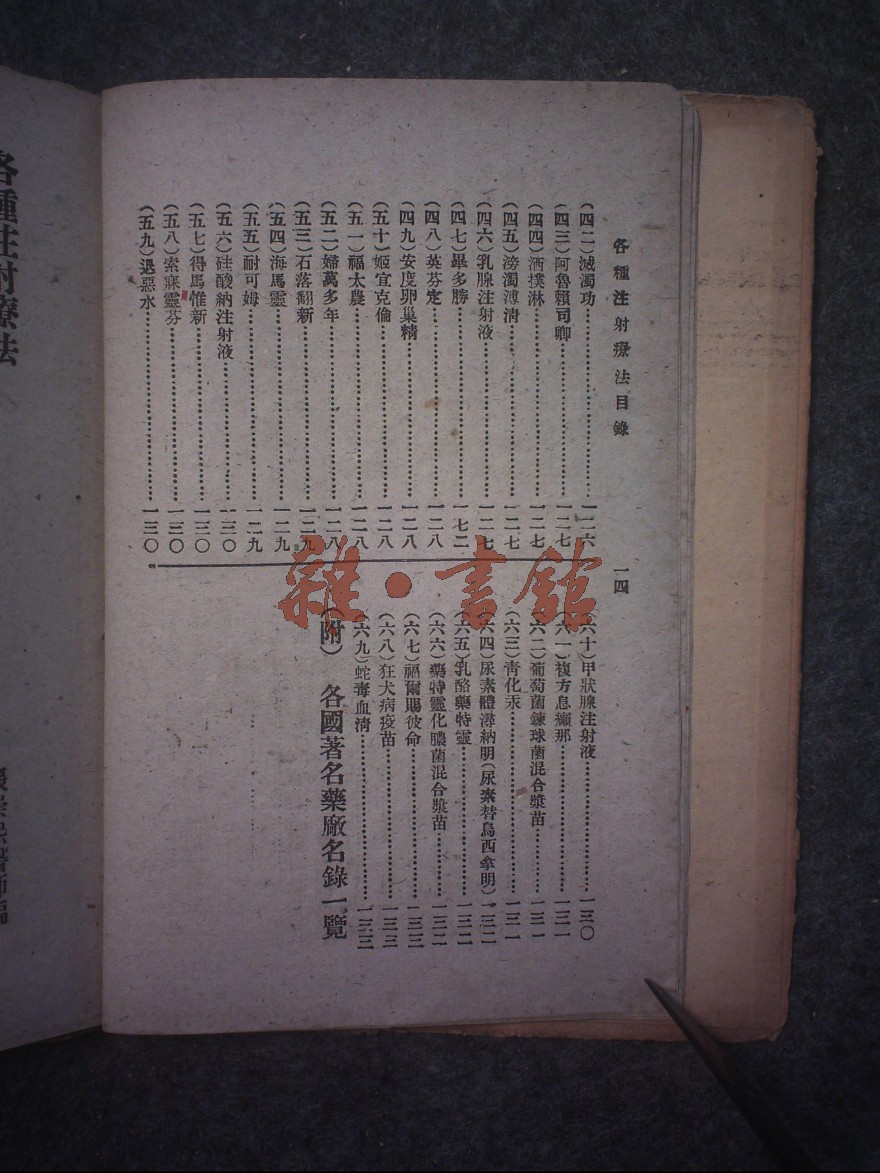 各種注射療法目錄 一四
(四二)滅濁功…………一二六
(四三)阿魯賴司卿…………一二七
(四四)洒撲淋…………一二七
(四五)滂濁溥清…………一二七
(四六)乳腺注射液…………一二七
(四七)畢多勝…………一七二
(四八)英芬定…………一二八
(四九)安度卵巢精…………一二八
(五十)姬宜克倫…………一二八
(五一)福太農…………一二八
(五二)婦萬多年…………一二八
(五三)石落翻新…………一二九
(五四)海馬靈…………一二九
(五五)耐可姆…………一二九
(五六)硅酸納注射液…………一三〇
(五七)得馬惟新…………一三〇
(五八)索寐靈芬…………一三〇
(五九)退惡水…………一三〇
(六十)甲狀腺注射液…………一三〇
(六一)複方息癲那…………一三一
(六二)葡萄菌鍊球菌混合漿苗…………一三一
(六三)靑化汞…………一三一
(六四)尿素體潯納明(尿素替烏西拿明)…一三二
(六五)乳酪藥特靈…………一三二
(六六)藥特靈化膿菌混合漿苗…………一三二
(六七)福爾賜彼命…………一三三
(六八)狂犬病疫苗…………一三三
(六九)蛇毒血清…………一三三
(附) 各國著名藥廠名錄一覽
各種注射療法
雜·書館